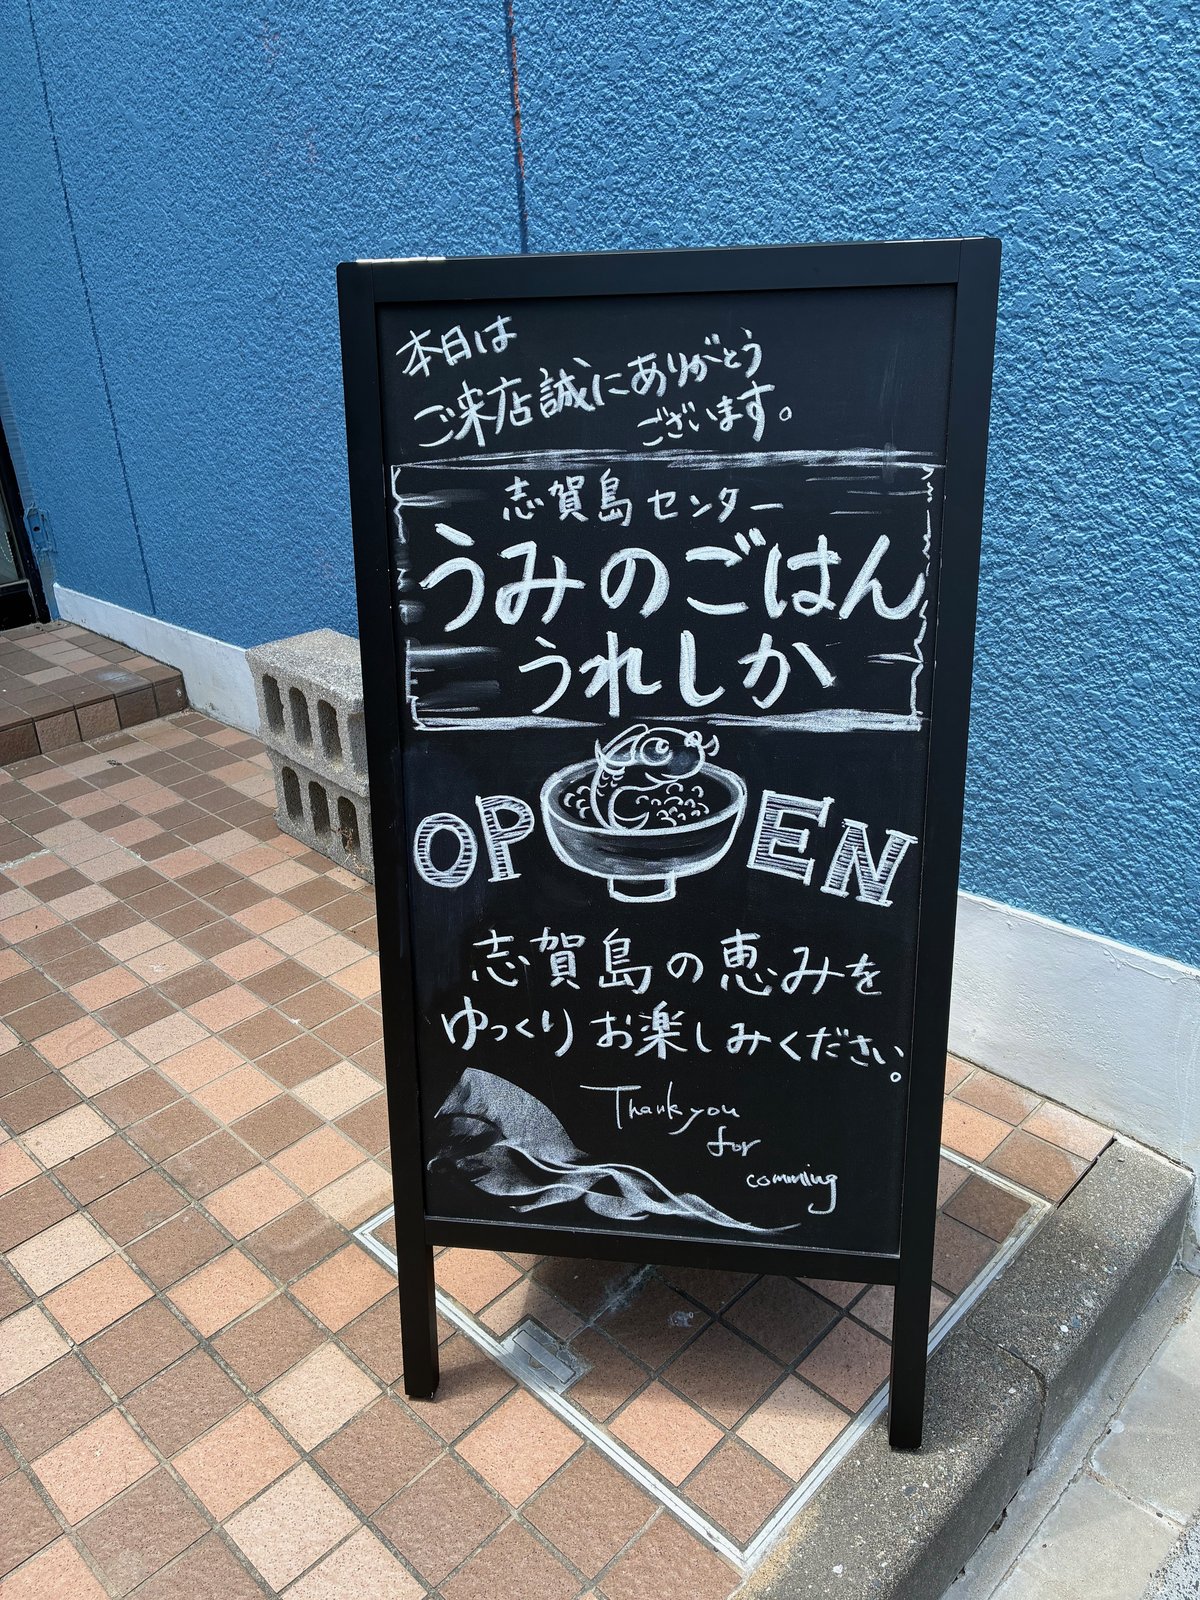 本日は
ご来店誠にありがとう
ございます。
志賀島センター
うみのごはん
うれしか
OPEN
志賀島の恵みを
ゆっくりお楽しみください。
Thank you
for
comming